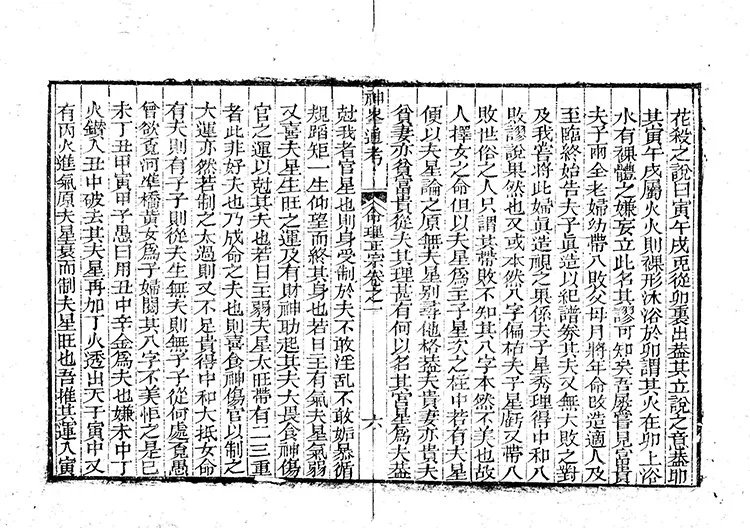 花殺之說曰寅午戌兎從卯裏出葢其立說之意葢即
其寅午戌屬火火則裸形沐浴於卯謂其火在卯上浴
水有裸體之嫌妄立此名其謬可知矣吾嘗見富貴
夫子兩全老婦幼帶八敗父母月將年命敗造適人及
至臨終始告夫子眞造以紀譜券其夫又無大敗之對
及我嘗將此婦眞造視之果係夫子星秀理得中和八
敗謬說果然也又或本然八字偏祜夫子星虧又帶八
敗世俗之人只謂其帶敗不知其八字本然不美也故
人擇女之命但以夫星爲主子星次之柱中若有夫星
便以夫星論之原無夫星別尋他格葢夫貴妻亦貴夫
貧妻亦貧富貴從夫其理甚有何以名其官星爲夫葢
神峯通考
命理正宗卷之一
六
尅我者官星也則身受制於夫不敢淫乱不敢妬慕循
規蹈矩一生仰望而終其身也若日主有氣夫星氣弱
又喜夫星生旺之運及有財神助起其夫大畏食神傷
官之運以尅其夫也若日主弱夫星太旺帶有二三重
者此非好夫也乃成命之夫也則喜食神傷官以制之
大運亦然若制之太過則又不足貴得中和大抵女命
有夫則有子子則從夫生無夫則無子子從何處覔愚
曾欲覔河準橋黃女爲子婦閱其八字不美恠之是已
未丁丑甲寅甲子愚曰用丑中辛金爲夫也嫌未中丁
火鑽入丑中破去其夫星再加丁火透出天干寅中又
有丙火進氣原夫星衰而制夫星旺也吾推其運入寅